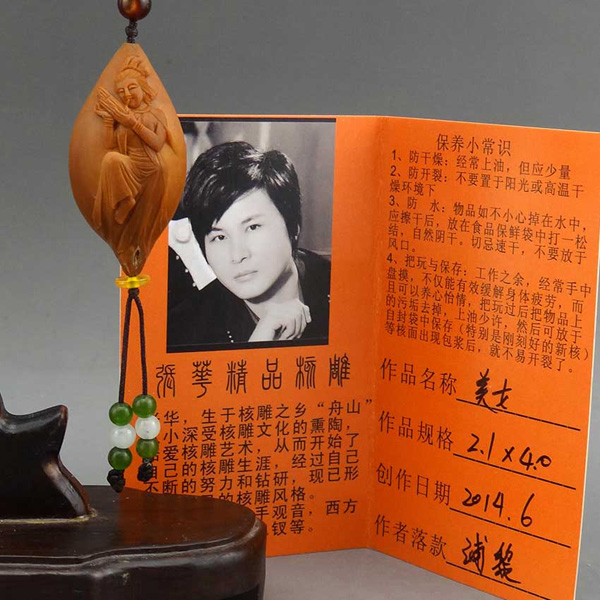 張華精品核雕
华，生于核雕之乡“舟山”
小深受核雕文化的熏陶，
爱核雕艺术，从而开始了
自己的核雕生涯，经过自己
不断的努力和钻研，现已形
的核雕风格。
手观音，西方
钗等。
保养小常识
1、防干燥：经常上油，但应少量
2、防开裂：不要置于阳光或高温干
燥环境下
3、防　水：物品如不小心掉在水中，
应擦干后，放在食品保鲜袋中打一松
结，自然阴干，切忌速干，不要放于
风口。
4、把玩与保存：工作之余，经常手中
盘摸，不仅能有效缓解身体疲劳，而
且可以养心怡情，把玩过后把物品上
的污垢去掉，上油少许，然后可放于
自封袋中保存（特别是刚刻好的新核）
等核面出现包浆后，就不易开裂了。
作品名称 美女
作品规格 2.1×4.0
创作日期 2014.6
作者落款